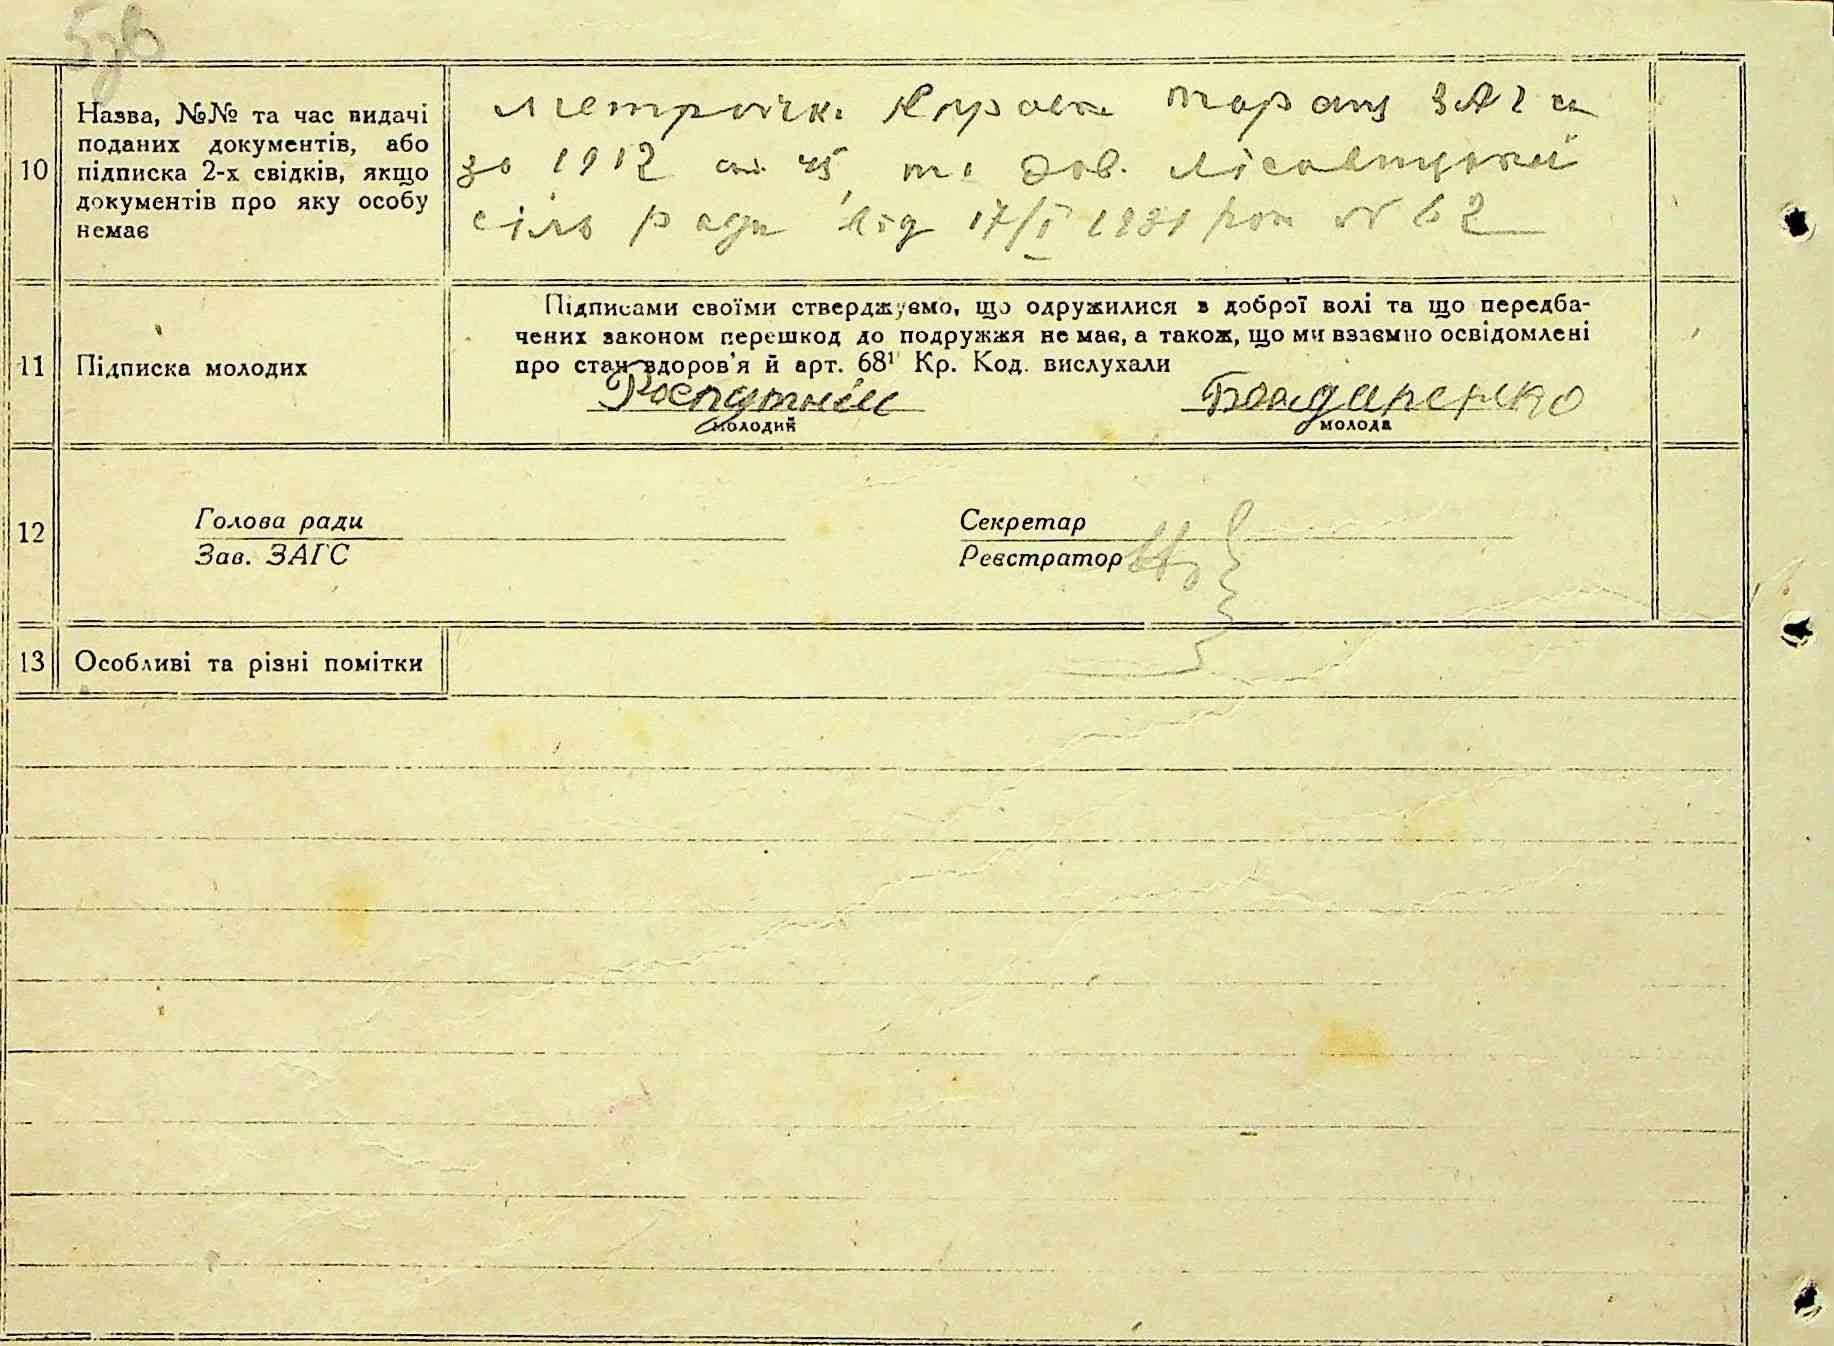 10
Назва, №№ та час видачі
поданих документів, або
підписка 2-х свідків, якщо
документів про яку особу
немає
ЗАГ
за 1912 45 дов.
сіль ради від 17/I 1931 рок № 62
11
Підписка молодих
Підписами своїми стверджуємо, що одружилися в доброї волі та що передба-
чених законом перешкод до подружжя не має, а також, що ми взаємно освідомлені
про стан здоров'я й арт. 68¹ Кр. Код. вислухали
Роспутній Бондаренко
молодий молода
12
Голова ради
Зав. ЗАГС
Секретар
Реєстратор
13
Особливі та різні помітки